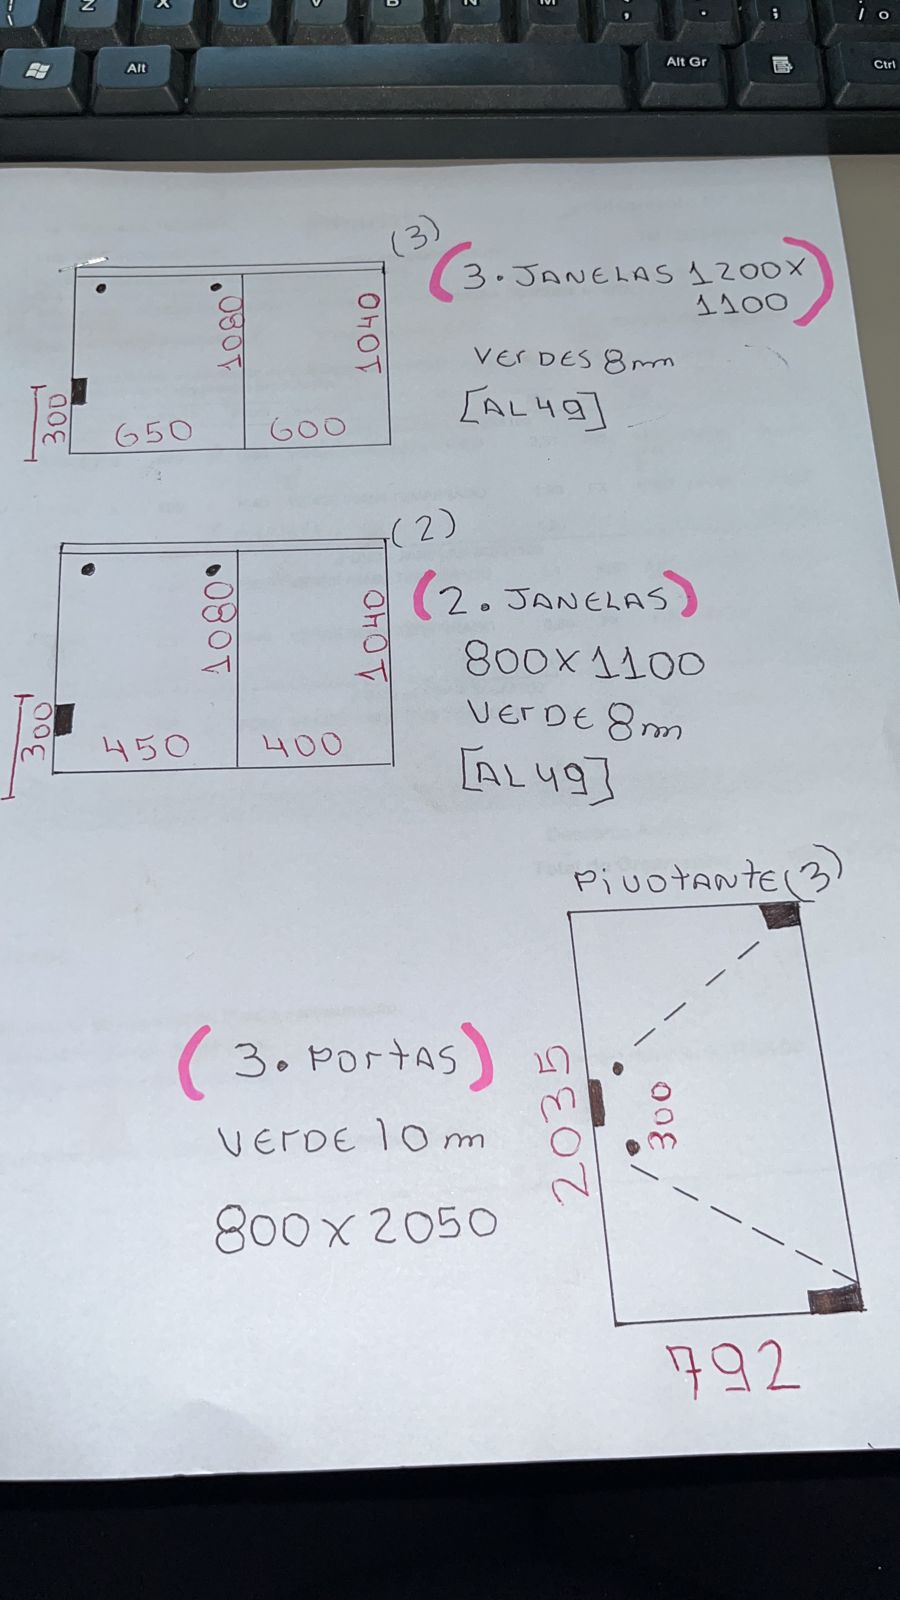 Z X C V B N M , . ; / o
Alt Alt Gr Ctrl
(3)
(3. JANELAS 1200X
1100)
VERDES 8mm
[AL 49]
1080
1040
300
650 600
(2)
(2. JANELAS)
800X1100
VERDE 8m
[AL 49]
1080
1040
300
450 400
PIVOTANTE (3)
(3. PORTAS)
VERDE 10m
800X2050
2035
300
792